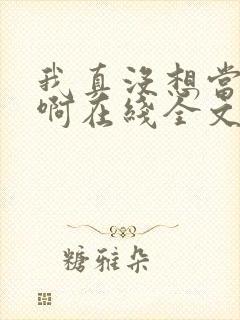 我真没想当
啊在线全文
糖雅朵